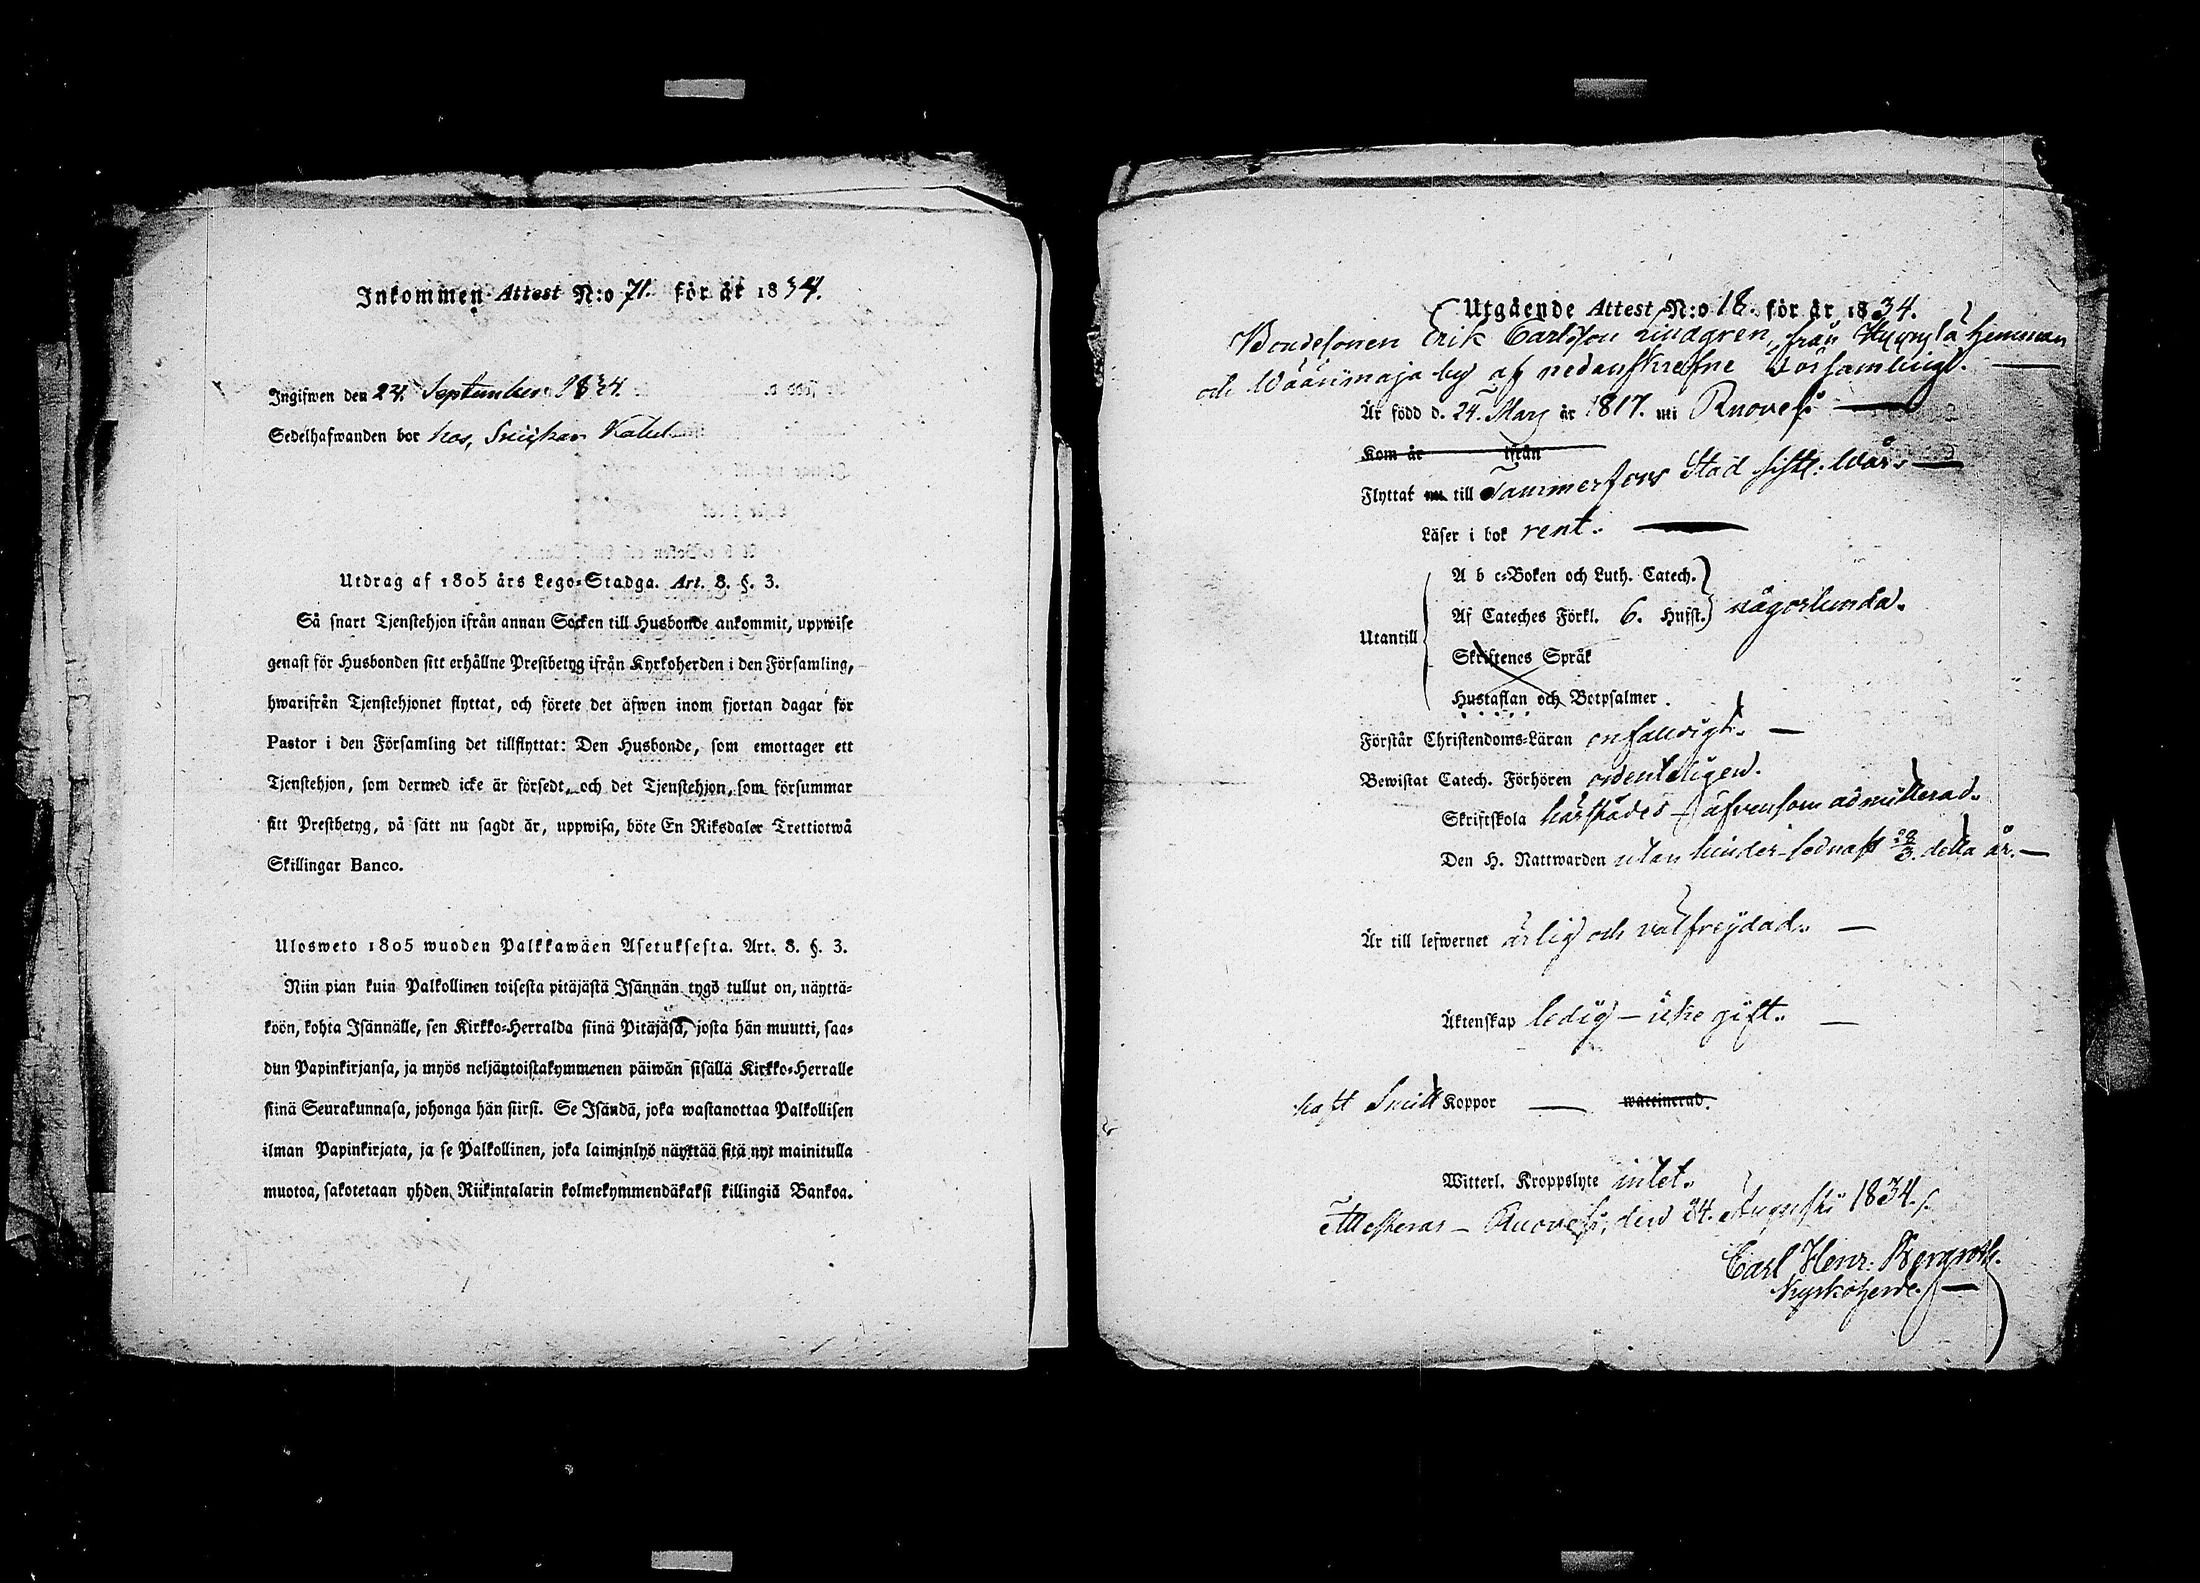 Inkommen Attest N:o 71. för år 1834.
Ingifwen den 24. September 1834.
Sedelhafwanden bor hos,
Utdrag af 1805 års Lego-Stadga. Art. 8. §. 3.
Så snart Tjenstehjon ifrån annan Socken till Husbonde ankommit, uppwise
genast för Husbonden sitt erhållne Prestbetyg ifrån Kyrkoherden i den Församling,
hwarifrån Tjenstehjonet flyttat, och förete det äfwen inom fjortan dagar för
Pastor i den Församling det tillflyttat: Den Husbonde, som emottager ett
Tjenstehjon, som dermed icke är försedt, och det Tjenstehjon, som försummar
sitt Prestbetyg, på sätt nu sagdt är, uppwisa, böte En Riksdaler Trettiotwå
Skillingar Banco.
Ulosweto 1805 wuoden Palkkawäen Asetuksesta. Art. 8. §. 3.
Niin pian kuin Palkollinen toisesta pitäjästä Isännän tygö tullut on, näyttä-
köön, kohta Isännälle, sen Kirkko-Herralda siinä Pitäjäsä, josta hän muutti, saa-
dun Papinkirjansa, ja myös neljäntoistakymmenen päiwän sisällä Kirkko-Herralle
siinä Seurakunnasa, johonga hän siirsi. Se Isändä, joka wastanottaa Palkollisen
ilman Papinkirjata, ja se Palkollinen, joka laiminlyö näyttää sitä nyt mainitulla
muotoa, sakotetaan yhden Riikintalarin kolmekymmendäkaksi killingiä Bankoa.
Utgående Attest N:o 18. för år 1834.
Bondesonen Erik Carlsson Lindgren, från Hyyrylä hemman
och Wäärimaja by af nedanskrefne Församlingl.
Är född d. 24. Mars år 1817. uti Ruovesi
Kom år ifrån
Flyttat nu till Tammerfors Stad sistl. Wår.
Läser i bok rent.
A b c-Boken och Luth. Catech.
Af Cateches Förkl. 6. Hufst. någorlunda.
Utantill
Skriftenes Språk
Hustaflan och Botpsalmer.
Förstår Christendoms-Läran enfaldigt.
Bewistat Catech. Förhören ordenteligen.
Skriftskola härstädes äfvensom admitterad.
Den H. Nattwarden utan hinder sednast 28/3. detta år.
Är till lefwernet ärlig och välfrejdad.
Äktenskap ledig – icke gift.
haft Smitt Koppor waccinerad.
Witterl. Kroppslyte intet.
Attesteras – Ruovesi, den 24. Augusti 1834.
Carl Henr. Bergroth.
Kyrkoherde.